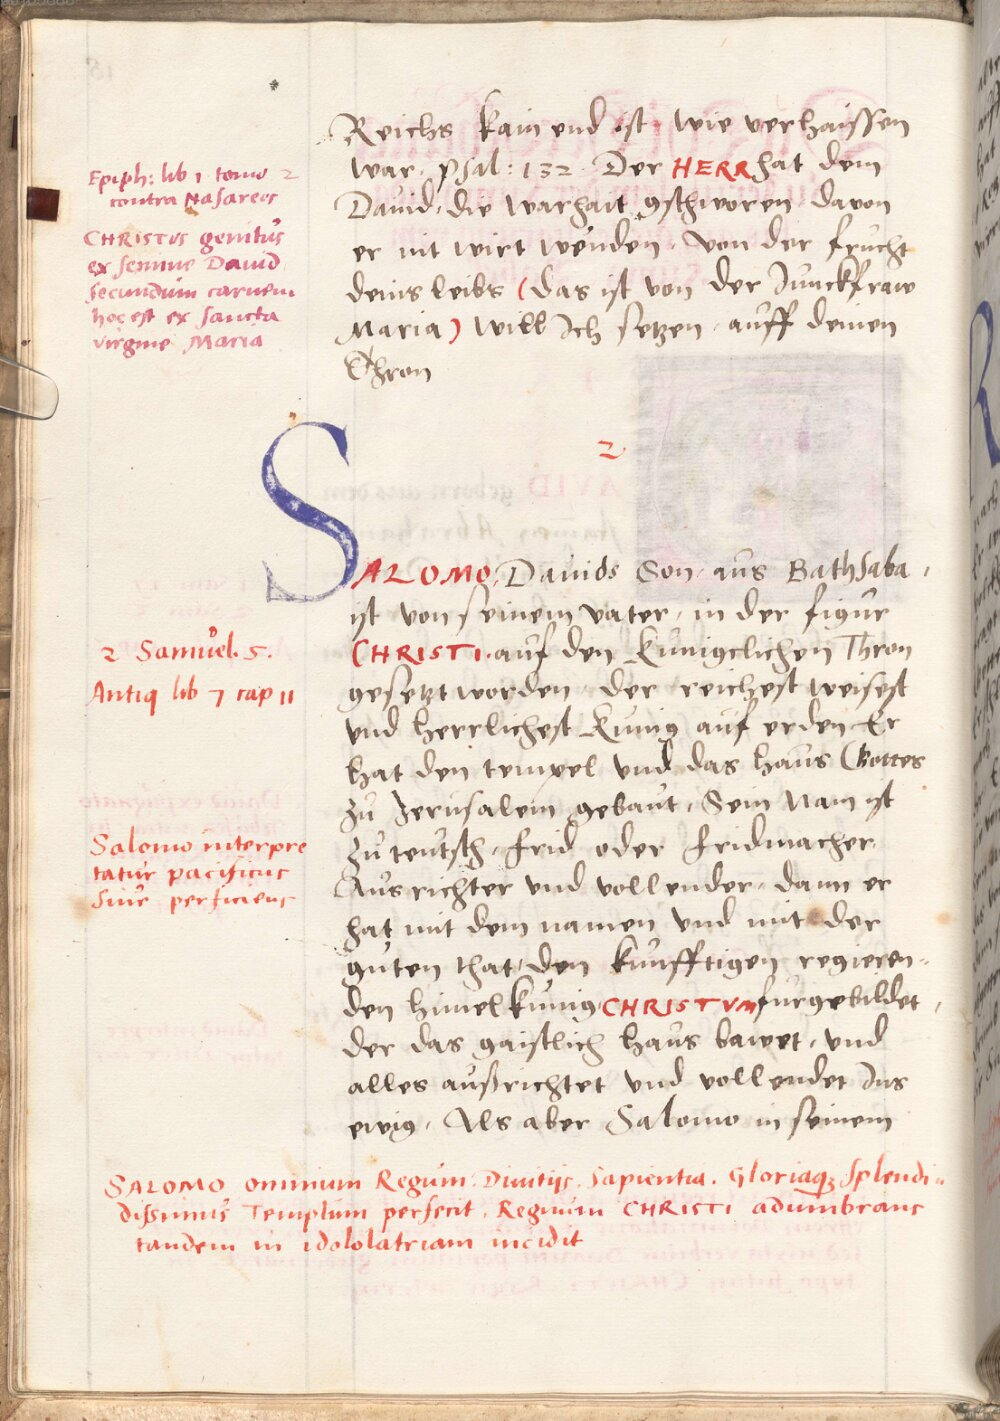 Reichs kain end ist, wie verhaissen
war, psal: 132. Der HERR hat dem
Dauid, die warhait gschworen dauon
er nit wirt wenden, Von der frucht
deins leibs (das ist von der Junckfraw
Maria) will Ich setzen, auff deinen
Thron
Epiph: lib 1 tomo 2
contra Nasareos
CHRISTUS genitus
ex semine Dauid
secundum carnem
hoc est ex sancta
virgine Maria
2
SALOMO, Dauids Son, aus Bathsaba,
ist von seinem vater, in der figur
CHRISTI. auf den Kunigclichen Thron
gesetzt worden, der reichest weisest
vnd herrlichest Kunig auf erden. Er
hat den tempel vnd das haus Gottes
zu Jerusalem gebaut, Sein Nam ist
zu teutsch, frid oder fridmacher
Ausrichter vnd vollender, dann er
hat mit dem namen vnd mit der
guten that, den kunfftigen regieren=
den himelkunig CHRISTVM furgebildet,
der das gaistlich haus bawet, vnd
alles außrichtet vnd vollendet Ins
ewig, Als aber Salomo in seinem
2 Samuel. 5.
Antiq lib 7 cap 11
Salomo interpre
tatur pacificus
siue perficiens
SALOMO omnium Regum Diuitijs, Sapientia, Gloriaq3 splendi=
dissimus Templum perfecit, Regnum CHRISTI adumbrans
tandem in idololatriam incidit